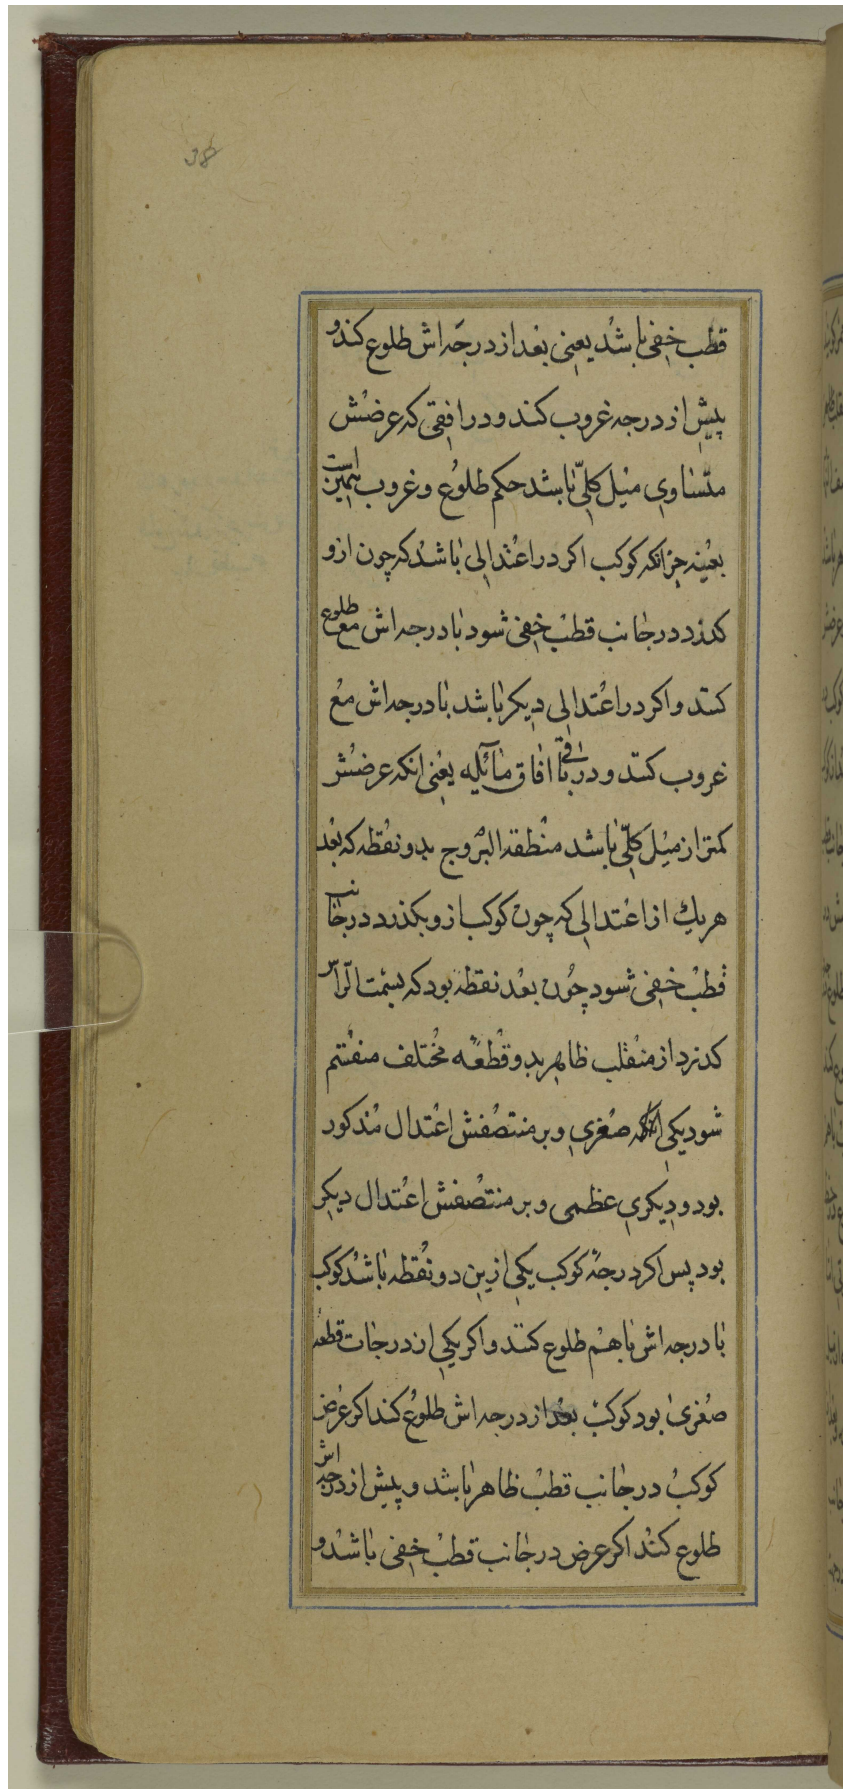 38
قطب خفی باشد یعنی بعد از درجه اش طلوع کند و
پیش از درجه غروب کند و در افقی که عرضش
متساوی میل کلّی باشد حکم طلوع و غروب همین است
بعینه جز انکه کوکب اکر در اعتدالی باشد که چون ازو
کذرد در جانب قطب خفی شود با درجه اش مع طلوع
کند و اکر در اعتدالی دیکر باشد با درجه اش مع
غروب کند و در باقی افاق مائله یعنی انکه عرضش
کمتر از میل کلّی باشد منطقة البروج بدو نقطه که بعد
هریك از اعتدالی که چون کوکب ازو بکذرد در جانب
قطب خفی شود چون بعد نقطه بود که بسمت الرأس
کذرد از منقلب ظاهر بدو قطعه مختلف منقسم
شود یکی صغری و بر منتصفش اعتدال مذکور
بود و دیکری عظمی و بر منتصفش اعتدال دیکر
بود پس اکر درجهٔ کوکب یکی ازین دو نقطه باشد کوکب
با درجه اش باهم طلوع کند و اکر یکی از درجات قطعه
صغری بود کوکب بعد از درجه اش طلوع کند اکر عرض
کوکب در جانب قطب ظاهر باشد و پیش از درجه اش
طلوع کند اکر عرض در جانب قطب خفی باشد و